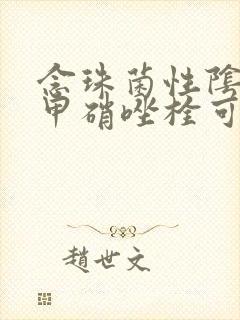 念珠菌性陰
甲硝唑栓可
趙世文